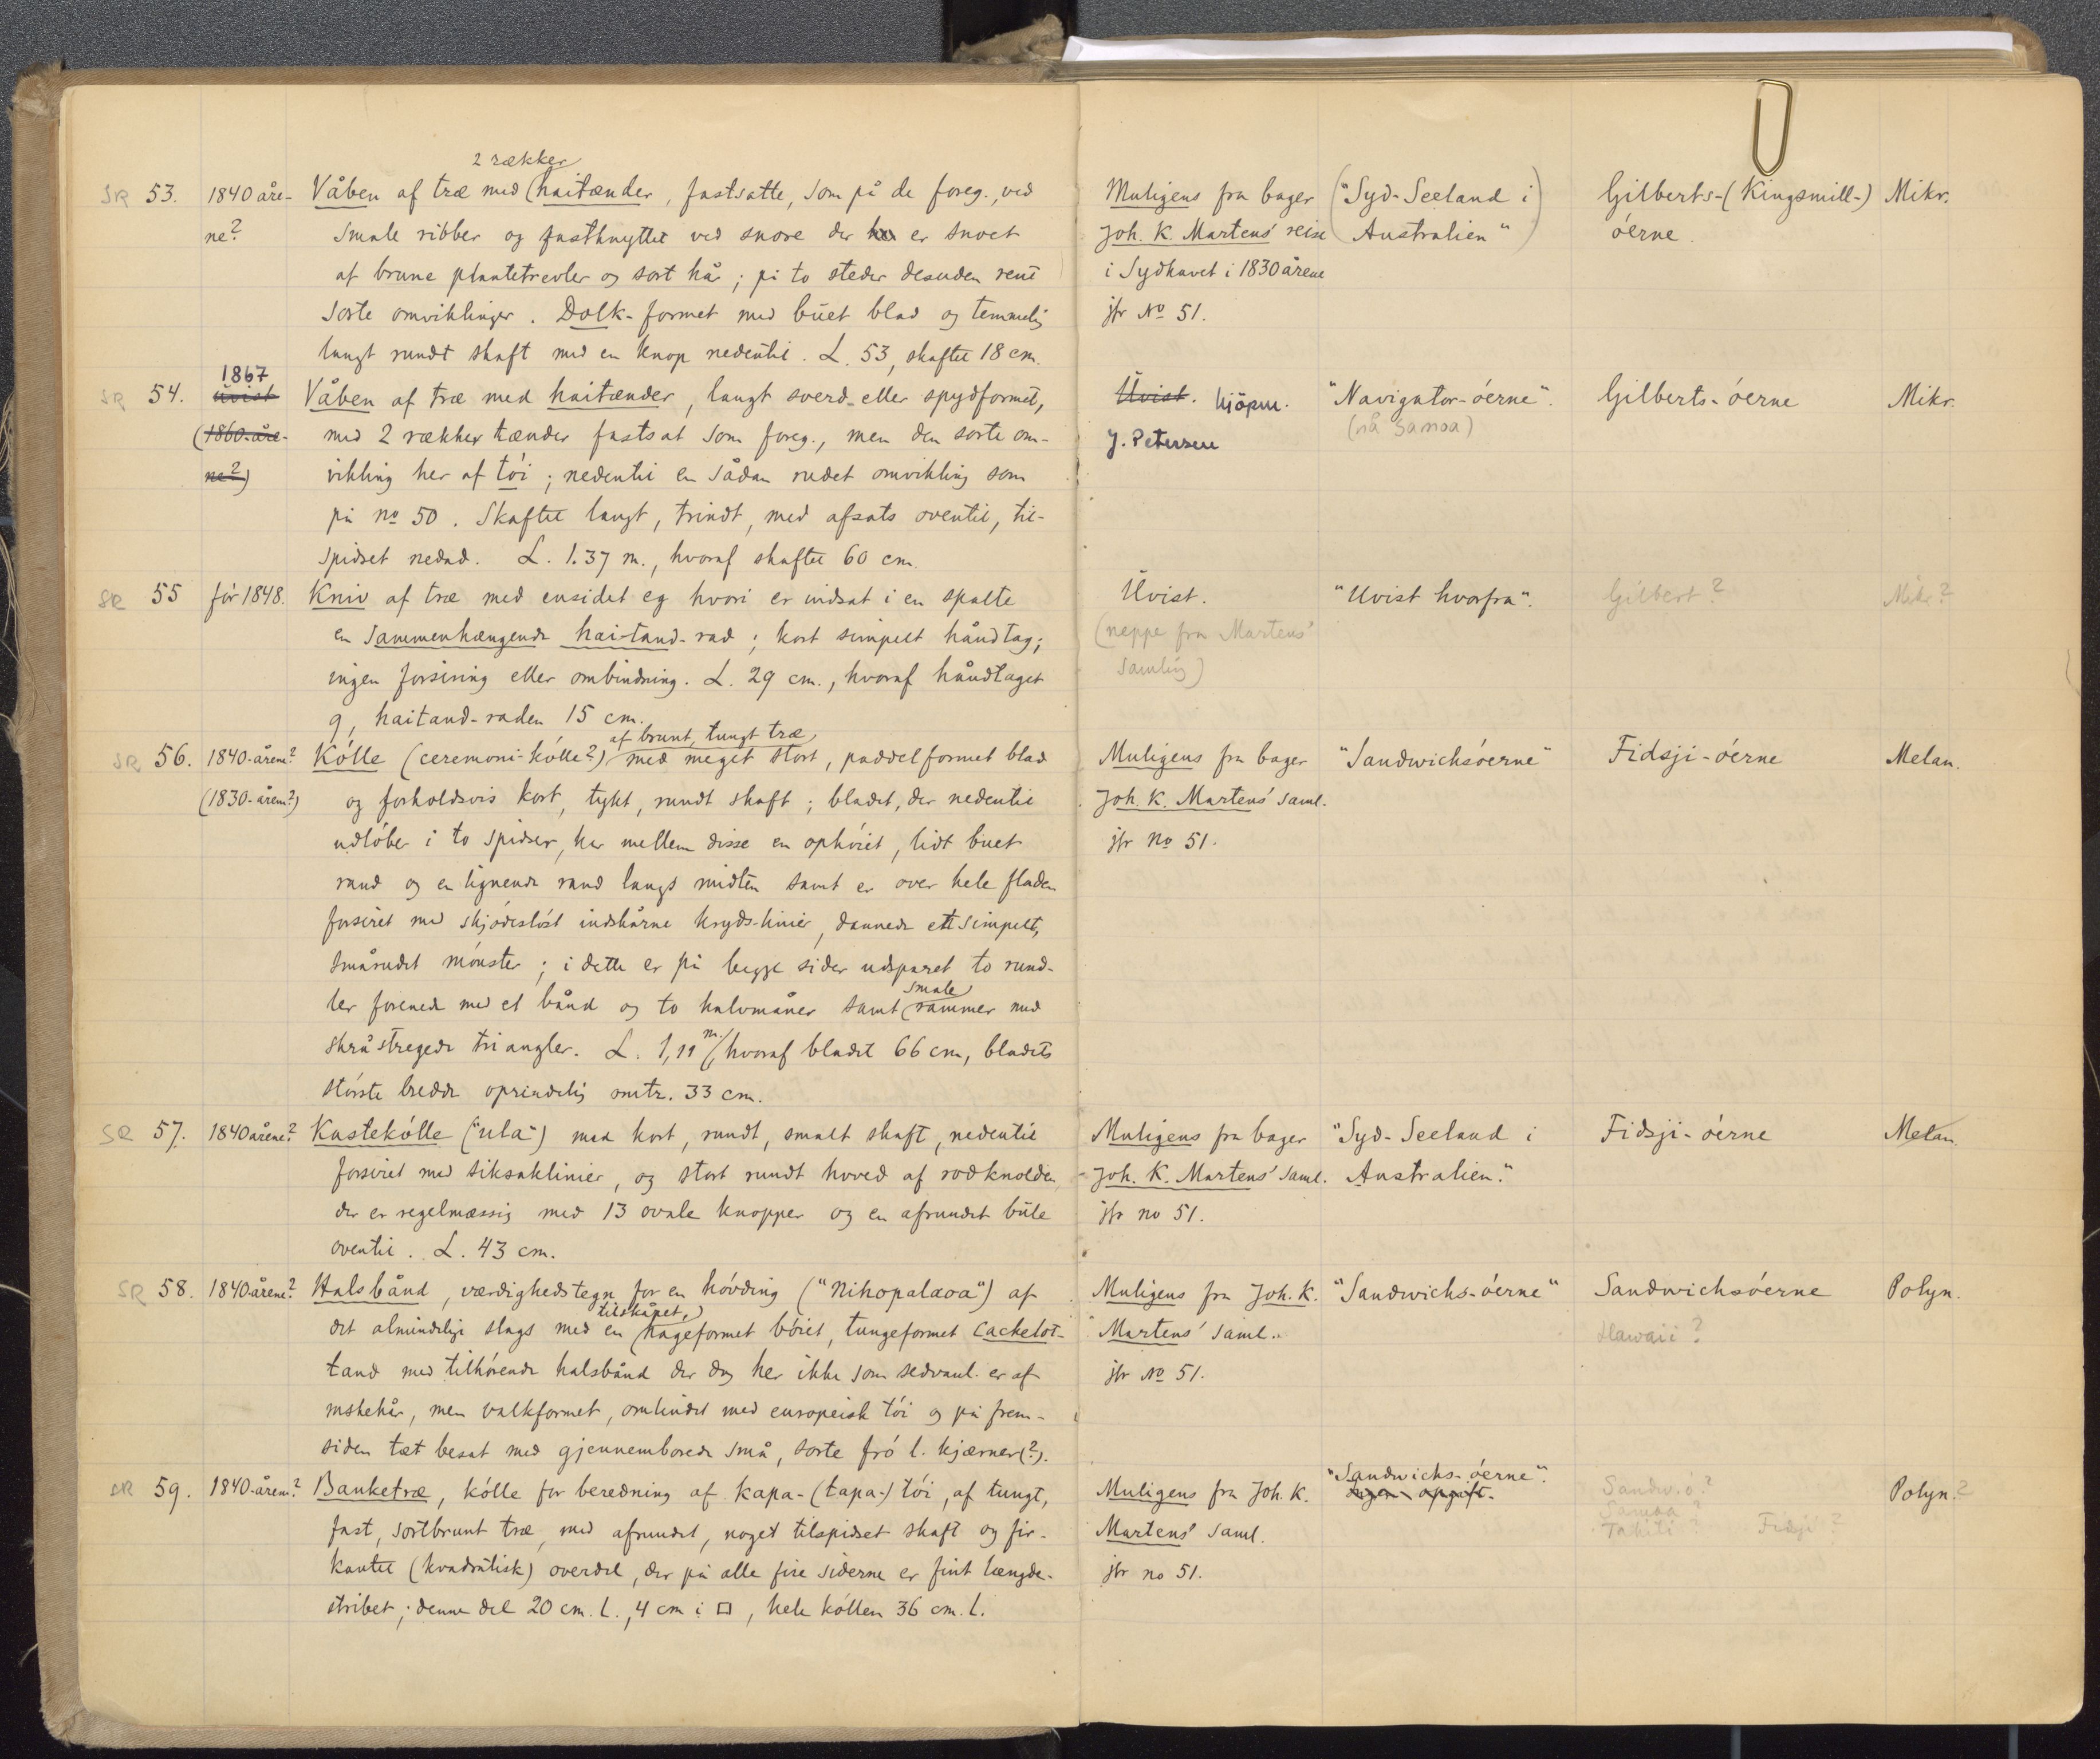 2 rækker
SR 53. 1840 åre- Våben af træ med haitænder, fastsatte, som på de foreg., ved Muligens fra bager ("Syd-Seeland i Gilberts-(Kingsmill-) Mikr.
ne? smale ribber og fastknyttet ved snore der er snoet Joh. K. Martens' reise Australien") óerne.
af brune plantetrevler og sort hår; på to steder desuden rent i Sydhavet i 1830 årene
sorte omviklinger. Dolk-formet med buet blad og temmelig jfr No 51.
langt rundt skaft med en knop nedentil. L. 53, skaftet 18 cm.
1867
SR 54. uvist Våben af træ med haitænder, langt sverd- eller spydformet, Uvist. kjöpm. "Navigator-óerne". Gilberts-óerne Mikr.
(1860-åre- med 2 rækker tænder fastsat som foreg., men den sorte om- J. Petersen (så Samoa)
ne?) vikling her af tói; nedentil en sådan rudet omvikling som
på no 50. Skaftet langt, trindt, med afsats oventil, til-
spidset nedad. L. 1.37 m., hvoraf skaftet 60 cm.
SR 55 fór 1848. Kniv af træ med ensidet eg hvori er indsat i en spalte Uvist. "Uvist hvorfra". Gilbert? Mikr?
en sammenhængende hai-tand-rad; kort simpelt håndtag; (neppe fra Martens'
ingen forsiring eller ombindning. L. 29 cm., hvoraf håndtaget samling)
9, haitand-raden 15 cm.
af brunt, tungt træ,
SR 56. 1840-årene? Kólle (ceremoni-kólle?) med meget stort, paddelformet blad Muligens fra bager "Sandwichsóerne" Fidsji-óerne Melan.
(1830-årene?) og forholdsvis kort, tykt, rundt skaft; bladet, der nedentil Joh. K. Martens' saml.
udlóber i to spidser, har mellem disse en ophóiet, lidt buet jfr No 51.
rand og en lignende rand langs midten samt er over hele fladen
forsiret med skjódeslóst indskårne kryds-linier, dannede ett simpelt,
smårudet mónster; i dette er på begge sider udsparet to rund-
smale
ler forenede med et bånd og to halvmåner samt rammer med
skråstregede triangler. L. 1,11 m., hvoraf bladet 66 cm, bladets
stórste bredde oprindelig omtr. 33 cm.
SR 57. 1840 årene? Kastekólle ("ula") med kort, rundt, smalt skaft, nedentil Muligens fra bager "Syd-Seeland i Fidsji-óerne Melan.
forsiret med siksaklinier, og stort rundt hoved af rodknolden Joh. K. Martens' saml. Australien."
der er regelmæssig med 13 ovale knopper og en afrundet bule jfr no 51.
oventil. L. 43 cm.
SR 58. 1840 årene? Halsbånd, værdighedstegn for en hóvding ("Nihopalaoa") af Muligens fra Joh. K. "Sandwichs-óerne" Sandwichsóerne Polyn.
tilskåpet,
det almindelige slags med en hageformet bóiet, tungeformet Cachelot- Martens' saml. Hawaii?
tand med tilhórende halsbånd der dog her ikke som sedvanl. er af jfr No 51.
mskehår, men valkformet, ombundet med europeisk tói og på frem-
siden tæt besat med gjennemborede små, sorte fró l. kjærner(?).
"Sandwichs-óerne".
SR 59. 1840-årene? Banketræ, kólle for beredning af kapa-(tapa-) tói, af tungt, Muligens fra Joh. K. ingen opgift. Sandw.ó? Polyn.?
fast, sortbrunt træ, med afrundet, noget tilspidset skaft og fir- Martens' saml. Samoa? Tahiti? Fidsji?
kantet (kvadratisk) overdel, der på alle fire siderne er fint længde- jfr no 51.
stribet; denne del 20 cm. l., 4 cm i □, hele kóllen 36 cm. l.